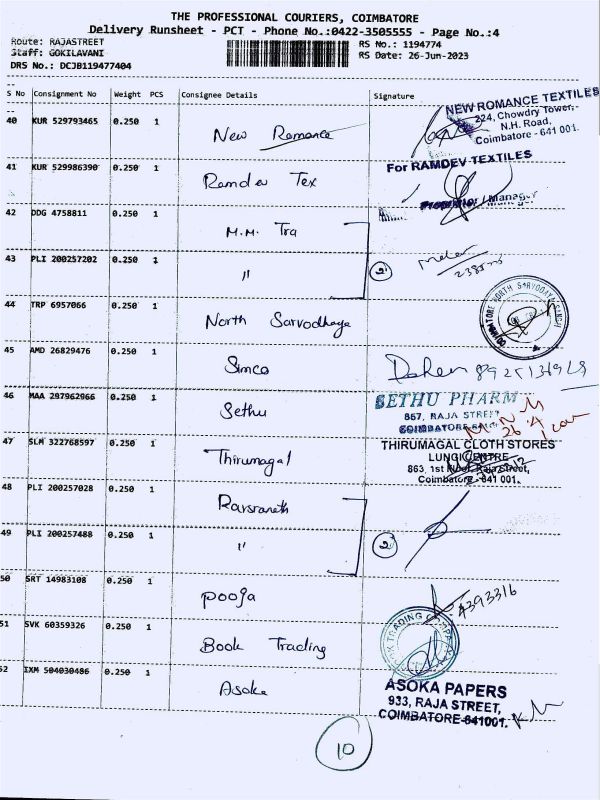 THE PROFESSIONAL COURIERS, COIMBATORE
Delivery Runsheet - PCT - Phone No.:0422-3505555 - Page No.:4
Route: RAJASTREET
RS No.: 1194774
Staff: GOKILAVANI
RS Date: 26-Jun-2023
DRS No.: DCJB119477404
S No Consignment No Weight PCS Consignee Details Signature
40 KUR 529793465 0.250 1 New Romance
NEW ROMANCE TEXTILES
224, Chowdry Tower,
N.H. Road,
Coimbatore - 641 001.
41 KUR 529986390 0.250 1 Ramdev Tex
For RAMDEV TEXTILES
Proprietor / Manager
42 DDG 4758811 0.250 1 M.M. Tra
43 PLI 200257202 0.250 1 "
2
44 TRP 6957066 0.250 1 North Sarvodhaya
45 AMD 26829476 0.250 1 Simco
46 MAA 297962966 0.250 1 Sethu
SETHU PHARM
867, RAJA STREET
COIMBATORE
47 SLM 322768597 0.250 1 Thirumagal
THIRUMAGAL CLOTH STORES
LUNGI CENTRE
863, 1st Floor, Raja Street,
Coimbatore - 641 001.
48 PLI 200257028 0.250 1
49 PLI 200257488 0.250 1 "
2
50 SRT 14983108 0.250 1 Pooja
4393316
51 SVK 60359326 0.250 1 Book Trading
52 IXM 504030486 0.250 1 Asoka
ASOKA PAPERS
933, RAJA STREET,
COIMBATORE-641001.
10